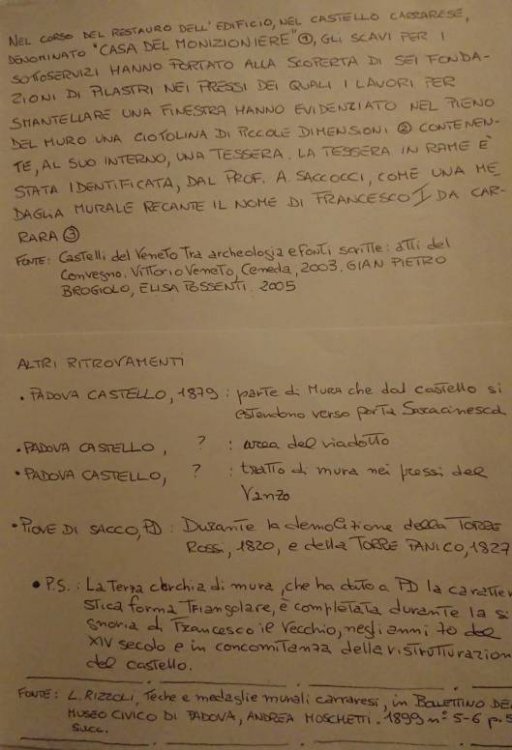 NEL CORSO DEL RESTAURO DELL'EDIFICIO, NEL CASTELLO CARRARESE,
DENOMINATO "CASA DEL MONIZIONIERE" ①, GLI SCAVI PER I
SOTTOSERVIZI HANNO PORTATO ALLA SCOPERTA DI SEI FONDA-
ZIONI DI PILASTRI NEI PRESSI DEI QUALI I LAVORI PER
SMANTELLARE UNA FINESTRA HANNO EVIDENZIATO NEL PIENO
DEL MURO UNA CIOTOLINA DI PICCOLE DIMENSIONI ② CONTENEN-
TE, AL SUO INTERNO, UNA TESSERA. LA TESSERA IN RAME È
STATA IDENTIFICATA, DAL PROF. A. SACCOCCI, COME UNA ME
DAGLIA MURALE RECANTE IL NOME DI FRANCESCO I DA CAR-
RARA ③
FONTE: Castelli del Veneto Tra archeologia e fonti scritte: atti del
Convegno. Vittorio Veneto, Ceneda, 2003. GIAN PIETRO
BROGIOLO, ELISA POSSENTI. 2005
ALTRI RITROVAMENTI
• PADOVA CASTELLO, 1879: parte di Mura che dal castello si
estendono verso porta Saracinesca
• PADOVA CASTELLO, ? : area del viadotto
• PADOVA CASTELLO, ? : tratto di mura nei pressi del
Vanzo
• PIOVE DI SACCO, PD: Durante la demolizione della TORRE
ROSSI, 1820, e della TORRE PANICO, 1827
• P.S.: La Terza cerchia di mura, che ha dato a PD la caratteri
stica forma Triangolare, è completata durante la si
gnoria di Francesco il Vecchio, negli anni 70 del
XIV secolo e in concomitanza della ristrutturazion
del castello.
FONTE: L. RIZZOLI, Teche e medaglie murali carraresi, in BOLLETTINO DEL
MUSEO CIVICO DI PADOVA, ANDREA MOSCHETTI. 1899 n° 5-6 p. 5
succ.